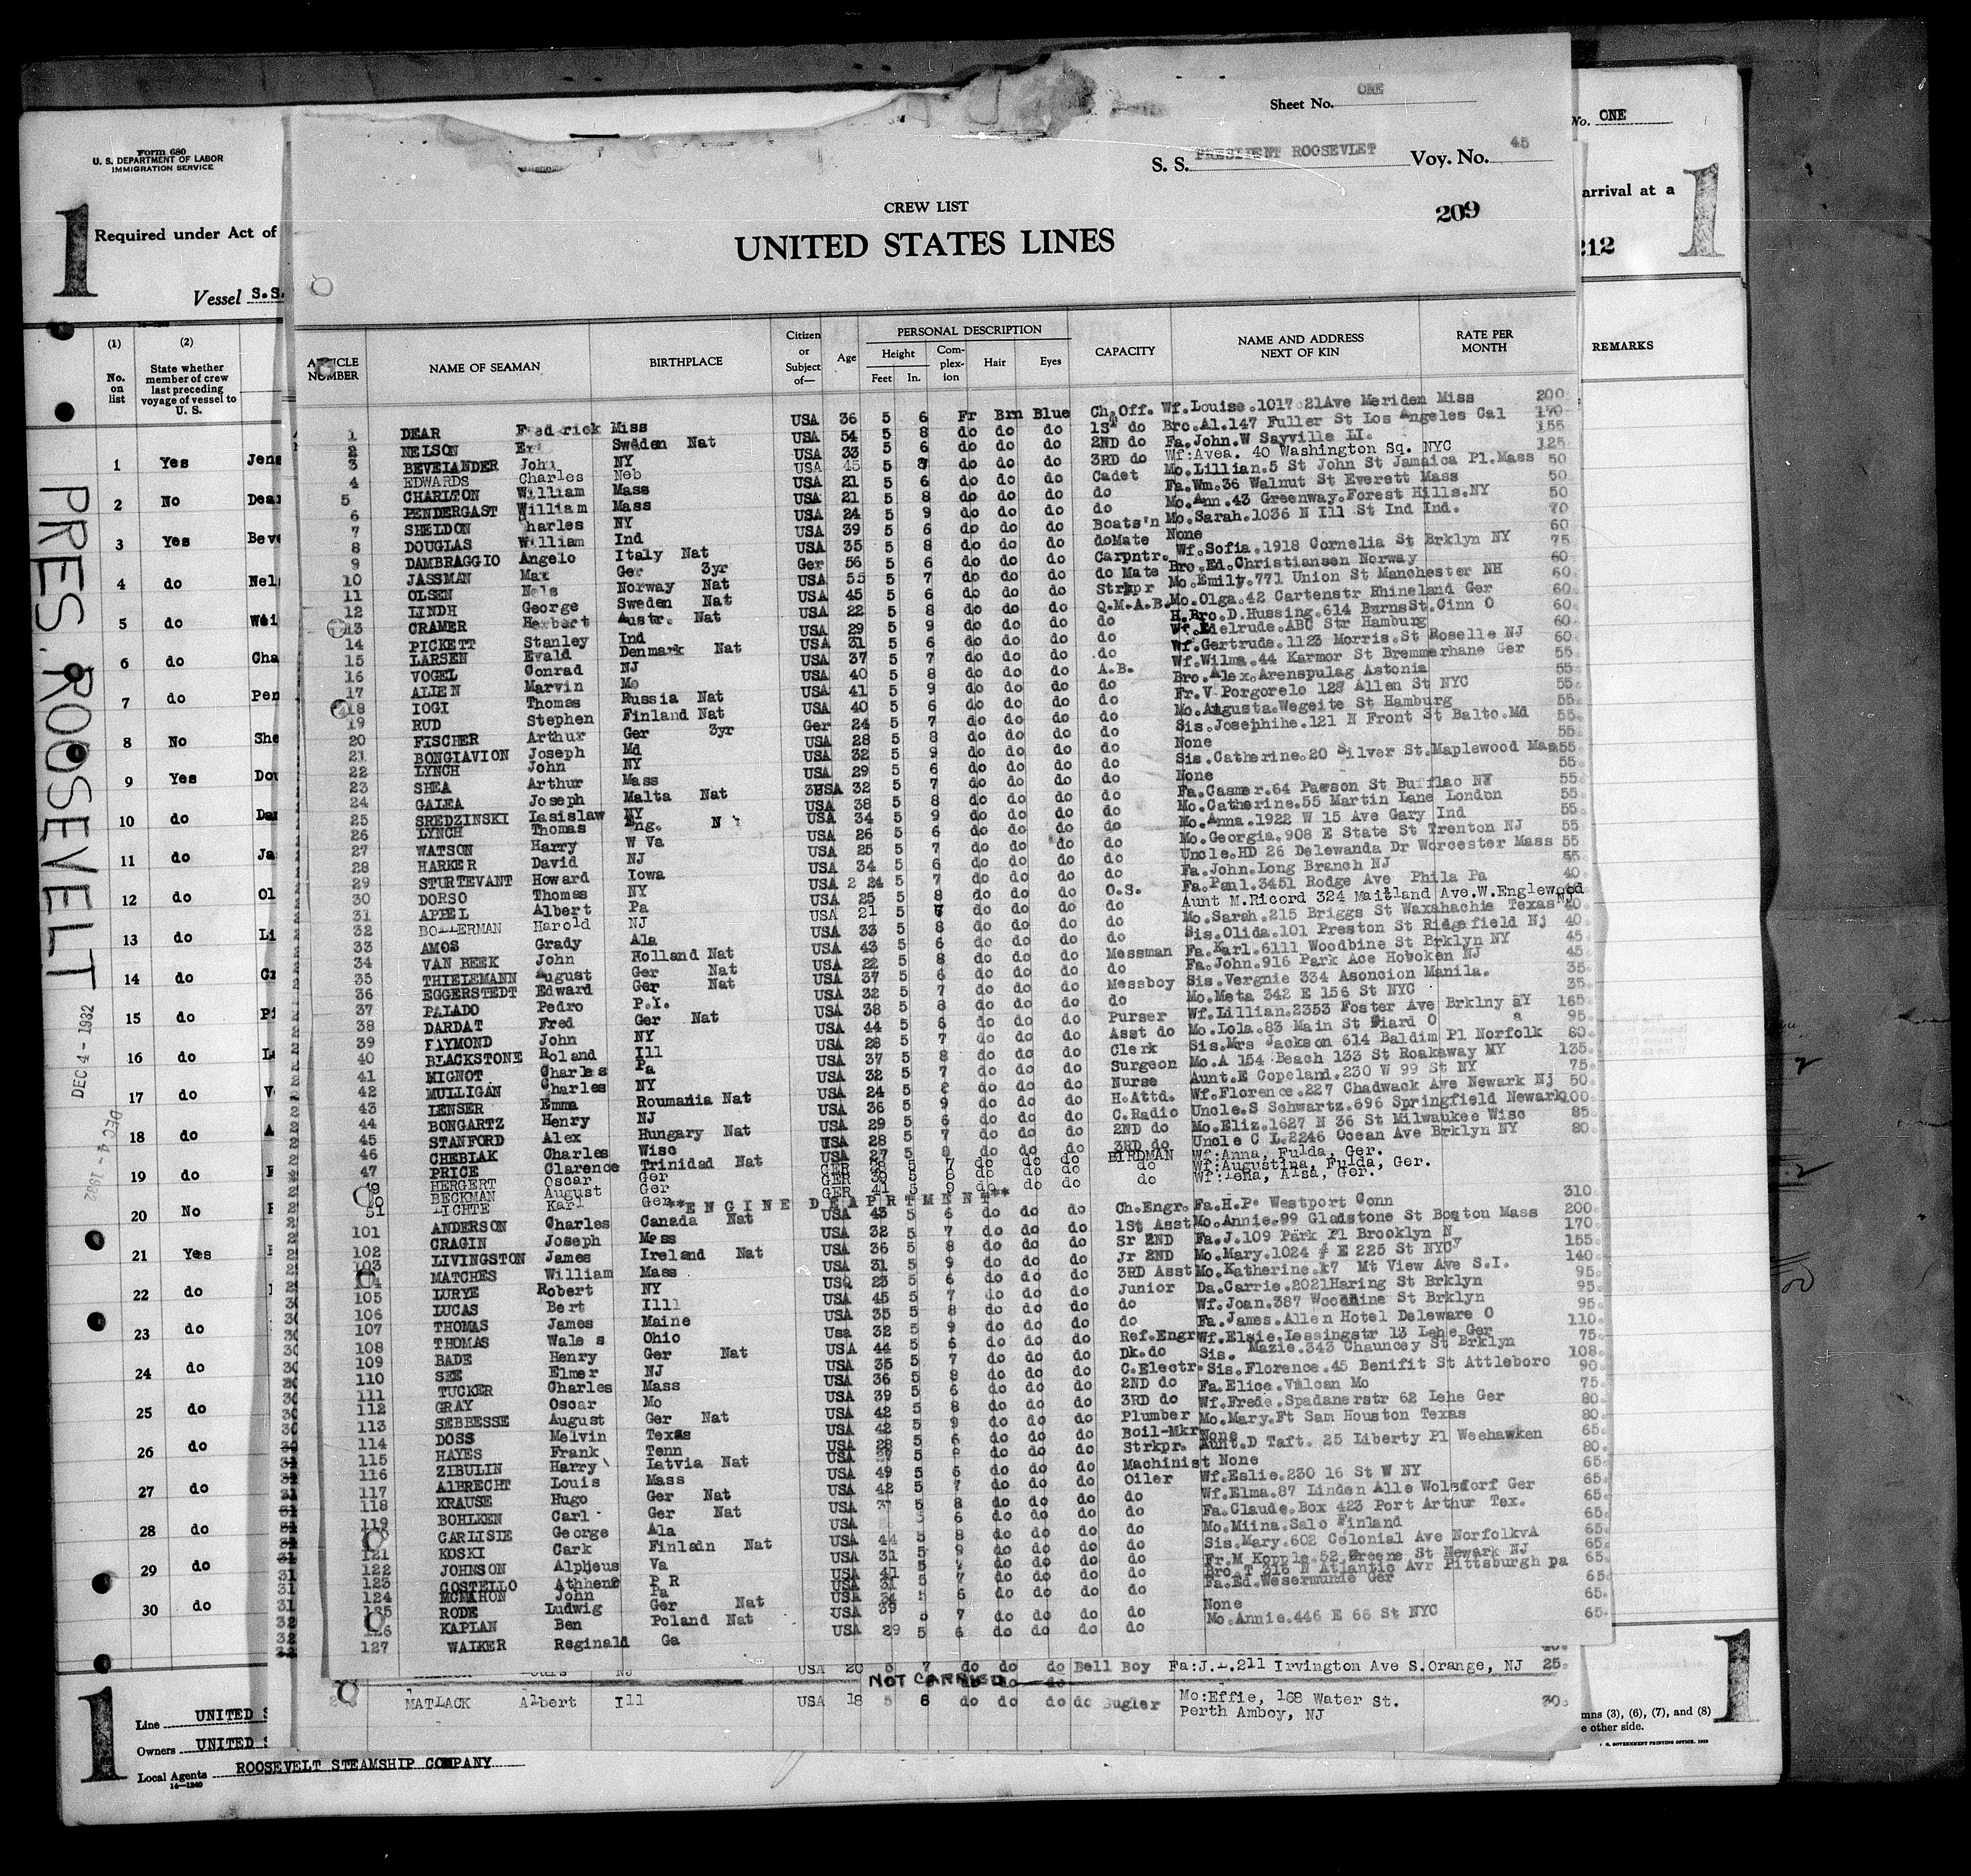 Form 680
U. S. DEPARTMENT OF LABOR
IMMIGRATION SERVICE
1
Required under Act of
Vessel S.S.
Sheet No. ONE
S. S. PRESIDENT ROOSEVLET Voy. No. 45
CREW LIST
209
UNITED STATES LINES
No. ONE
arrival at a
1
212
REMARKS
(1) (2)
No. on list
State whether member of crew last preceding voyage of vessel to U. S.
1 Yes Jens
2 No Dear
3 Yes Beve
4 do Nels
5 do Wei
6 do Cha
7 do Pen
8 No She
9 Yes Dou
10 do Dam
11 do Ja
12 do Ol
13 do Li
14 do Cr
15 do Pi
16 do
17 do V
18 do A
19 do
20 No
21 Yes
22 do
23 do
24 do
25 do
26 do
27 do
28 do
29 do
30 do
PRES. ROOSEVELT
DEC 4 - 1932
DEC 4 - 1932
ARTICLE NUMBER NAME OF SEAMAN BIRTHPLACE Citizen or Subject of— Age PERSONAL DESCRIPTION Height Feet In. Complexion Hair Eyes CAPACITY NAME AND ADDRESS NEXT OF KIN RATE PER MONTH
1 DEAR Frederick Miss USA 36 5 6 Fr Brn Blue Ch.Off. Wf.Louise.1017 21Ave Meriden Miss 200
2 NELSON Sweden Nat USA 54 5 8 do do do 1St do Bro.Al.147 Fuller St Los Angeles Cal 170
3 BEVELANDER John NY USA 33 5 6 do do do 2ND do Fa.John.W Sayville LI. 155
4 EDWARDS Charles Neb USA 45 5 8 do do do 3RD do Wf:Avea. 40 Washington Sq. NYC 125
5 CHARLTON William Mass USA 21 5 6 do do do Cadet Mo.Lillian.5 St John St Jamaica Pl.Mass 50
6 PENDERGAST William Mass USA 21 5 8 do do do do Fa.Wm.36 Walnut St Everett Mass 50
7 SHELDON Charles NY USA 24 5 9 do do do do Mo.Ann.43 Greenway.Forest Hills.NY 50
8 DOUGLAS William Ind USA 39 5 6 do do do Boats'n Mo.Sarah.1036 N Ill St Ind Ind. 70
9 DAMBRAGGIO Angelo Italy Nat USA 35 5 8 do do do doMate None 60
10 JASSMAN Max Ger 3yr Ger 56 5 6 do do do Carpntr. Wf.Sofia.1918 Cornelia St Brklyn NY 75
11 OLSEN Nels Norway Nat USA 55 5 7 do do do do Mate Bro.Ed.Christiansen Norway 60
12 LINDH George Sweden Nat USA 45 5 6 do do do Strkpr Mo.Emily.771 Union St Manchester NH 60
13 CRAMER Herbert Austr. Nat USA 22 5 8 do do do Q.M.A.B. Mo.Olga.42 Cartenstr Rhineland Ger 60
14 PICKETT Stanley Ind USA 29 5 9 do do do do H.Bro.D.Hussing.614 BurnsSt.Cinn O 60
15 LARSEN Evald Denmark Nat USA 31 5 6 do do do do Wf.Edelrude.ABC Str Hamburg 60
16 VOGEL Conrad NJ USA 37 5 7 do do do do Wf.Gertrude.1123 Morris.St Roselle NJ 60
17 ALLEN Marvin Mo USA 40 5 8 do do do A.B. Wf.Wilma.44 Karmor St Bremmerhane Ger 55
18 IOGI Thomas Russia Nat USA 41 5 9 do do do do Bro.Alex.Arenspulag Astonia 55
19 RUD Stephen Finland Nat USA 40 5 6 do do do do Fr.V Porgorelo 128 Allen St NYC 55
20 FISCHER Arthur Ger 3yr Ger 24 5 7 do do do do Mo.Augusta.Wegeite St Hamburg 55
21 BONGIAVION Joseph Md USA 28 5 8 do do do do Sis.Josephihe.121 N Front St Balto.Md 55
22 LYNCH John NY USA 32 5 9 do do do do None 55
23 SHEA Arthur Mass USA 29 5 6 do do do do Sis.Catherine.20 Silver St.Maplewood Mas 55
24 GALEA Joseph Malta Nat USA 32 5 7 do do do do None 55
25 SREDZINSKI Lasislaw NY USA 38 5 8 do do do do Fa.Casmer.64 Pawson St Bufflao NY 55
26 LYNCH Thomas Eng. USA 34 5 9 do do do do Mo.Catherine.55 Martin Lane London 55
27 WATSON Harry W Va USA 26 5 6 do do do do Mo.Anna.1922 W 15 Ave Gary Ind 55
28 HARKER David NJ USA 25 5 7 do do do do Mo.Georgia.908 E State St Trenton NJ 55
29 STURTEVANT Howard Iowa USA 34 5 6 do do do do Uncle.HD 26 Delewanda Dr Worcester Mass 55
30 DORSO Thomas NY USA 2 24 5 7 do do do do Fa.John.Long Branch NJ 55
31 APPEL Albert Pa USA 25 5 8 do do do O.S. Fa.Paul.3451 Rodge Ave Phila Pa 40
32 BOLLERMAN Harold NJ USA 21 5 8 do do do do Aunt M.Ricord 324 Maitland Ave.W.Englewood NJ
33 AMOS Grady Ala USA 33 5 8 do do do do Mo.Sarah.215 Briggs St Waxahachie Texas 40
34 VAN BEEK John Holland Nat USA 43 5 6 do do do do Sis.Olida.101 Preston St Ridgefield Nj 40
35 THIELEMANN August Ger Nat USA 22 5 8 do do do Messman Fa.Karl.6111 Woodbine St Brklyn NY 45
36 EGGERSTEDT Edward Ger Nat USA 37 5 6 do do do do Fa.John.916 Park Ace Hoboken NJ 45
37 PALADO Pedro P.I. USA 32 5 7 do do do Messboy Sis.Vergnie 334 Asoncion Manila. 35
38 DARDAT Fred Ger Nat USA 38 5 8 do do do do Mo.Meta 342 E 156 St NYC 35
39 RAYMOND John NY USA 44 5 6 do do do Purser Wf.Lillian.2353 Foster Ave Brklny NY 165
40 BLACKSTONE Roland Ill USA 28 5 7 do do do Asst do Mo.Lola.83 Main St O 95
41 MIGNOT Charles Pa USA 37 5 8 do do do Clerk Sis.Mrs Jackson 614 Baldim Pl Norfolk 80
42 MULLIGAN Charles NY USA 32 5 7 do do do Surgeon Mo.A 154 Beach 133 St Roakaway NY 135
43 LENSER Emma Roumania Nat USA 24 5 8 do do do Nurse Aunt.E Copeland.230 W 99 St NY 75
44 BONGARTZ Henry NJ USA 36 5 9 do do do H.Attd. Wf.Florence.227 Chadwack Ave Newark Nj 50
45 STANFORD Alex Hungary Nat USA 29 5 6 do do do C.Radio Uncle.S Schwartz.696 Springfield Newark 100
46 CHEBIAK Charles Wisc USA 28 5 7 do do do 2ND do Mo.Eliz.1627 N 36 St Milwaukee Wisc 85
47 PRICE Clarence Trinidad Nat USA 27 5 8 do do do 3RD do Uncle C L.2246 Ocean Ave Brklyn NY 80
49 HERGERT Oscar Ger GER 28 5 7 do do do BIRDMAN Wf:Anna, Fulda, Ger.
BECKMAN August Ger GER 39 5 8 do do do do Wf:Augustina, Fulda, Ger.
51 LICHTE Karl Ger GER 41 5 9 do do do do Wf:Lena, Alsa, Ger.
**ENGINE DEAPRTMENT**
101 ANDERSON Charles Canada Nat USA 43 5 6 do do do Ch.Engr. Fa.H.P. Westport Conn 310
102 CRAGIN Joseph Mass USA 32 5 7 do do do 1St Asst Mo.Annie.99 Gladstone St Boston Mass 200
103 LIVINGSTON James Ireland Nat USA 36 5 8 do do do Sr 2ND Fa.J.109 Park Pl Brooklyn Ny 170
104 MATCHES William Mass USA 31 5 9 do do do Jr 2ND Mo.Mary.1024 E 225 St NYC 155
105 LURYE Robert NY USQ 23 5 6 do do do 3RD Asst Mo.Katherine.17 Mt View Ave S.I. 140
106 LUCAS Bert Illl USA 45 5 7 do do do Junior Da.Carrie.2021Haring St Brklyn 95
107 THOMAS James Maine USA 35 5 8 do do do do Wf.Joan.387 Woodnine St Brklyn 95
108 THOMAS Wales Ohio Usa 32 5 9 do do do do Fa.James.Allen Hotel Deleware O 95
109 BADE Henry Ger Nat USA 44 5 6 do do do Ref.Engr Wf.Elsie.Lessingstr 13 Lehe Ger 110
110 SEE Elmer NJ USA 35 5 7 do do do Dk.do Sis. Mazie.343 Chauncey St Brklyn 75
111 TUCKER Charles Mass USA 36 5 8 do do do C.Electr. Sis.Florence.45 Benifit St Attleboro 108
112 GRAY Oscar Mo USA 39 5 6 do do do 2ND do Fa.Elice.Vulcan Mo 90
113 SEBBESSE August Ger Nat USA 42 5 8 do do do 3RD do Wf.Frede.Spadanerstr 62 Lehe Ger 75
114 DOSS Melvin Texas USA 42 5 9 do do do Plumber Mo.Mary.Ft Sam Houston Texas 80
115 HAYES Frank Tenn USA 28 5 6 do do do Boil-Mkr None 80
116 ZIBULIN Harry Latvia Nat USA 27 5 8 do do do Strkpr. Aunt.D Taft. 25 Liberty Pl Weehawken 65
117 ALBRECHT Louis Mass USA 49 5 6 do do do Machinist None 80
118 KRAUSE Hugo Ger Nat USA 42 5 7 do do do Oiler Wf.Eslie.230 16 St W NY 65
119 BOHLKEN Carl Ger Nat USA 37 5 8 do do do do Wf.Elma.87 Linden Alle Wolsdorf Ger 65
CARLISIE George Ala USA 5 6 do do do do Fa.Claude.Box 423 Port Arthur Tex. 65
121 KOSKI Cark Finladn Nat USA 44 5 8 do do do do Mo.Miina.Salo Finland 65
122 JOHNSON Alpheus Va USA 31 5 9 do do do do Sis.Mary.602 Colonial Ave NorfolkvA 65
123 COSTELLO Athhens P R USA 41 5 7 do do do do Fr.M Kopple.52 Greene St Newark NJ 65
124 MCMAHON John Pa USA 31 5 7 do do do do Bro.T 316 N Atlantic Avr Pittsburgh pa 65
125 RODE Ludwig Ger Nat USA 34 5 6 do do do do Fa.Ed.Wesermunde Ger 65
126 KAPLAN Ben Poland Nat USA 39 5 7 do do do do None 65
127 WALKER Reginald Ga USA 29 5 6 do do do do Mo.Annie.446 E 66 St NYC 65
NJ USA 20 5 7 do do do Bell Boy Fa:J.L.211 Irvington Ave S.Orange, NJ 25
NOT CARRIED
MATLACK Albert Ill USA 18 5 8 do do do do Bugler Mo:Effie, 168 Water St. 30
Perth Amboy, NJ
1
Line UNITED S
Owners UNITED S
Local Agents ROOSEVELT STEAMSHIP COMPANY
14—1240
mns (3), (6), (7), and (8)
e other side.
GOVERNMENT PRINTING OFFICE
1